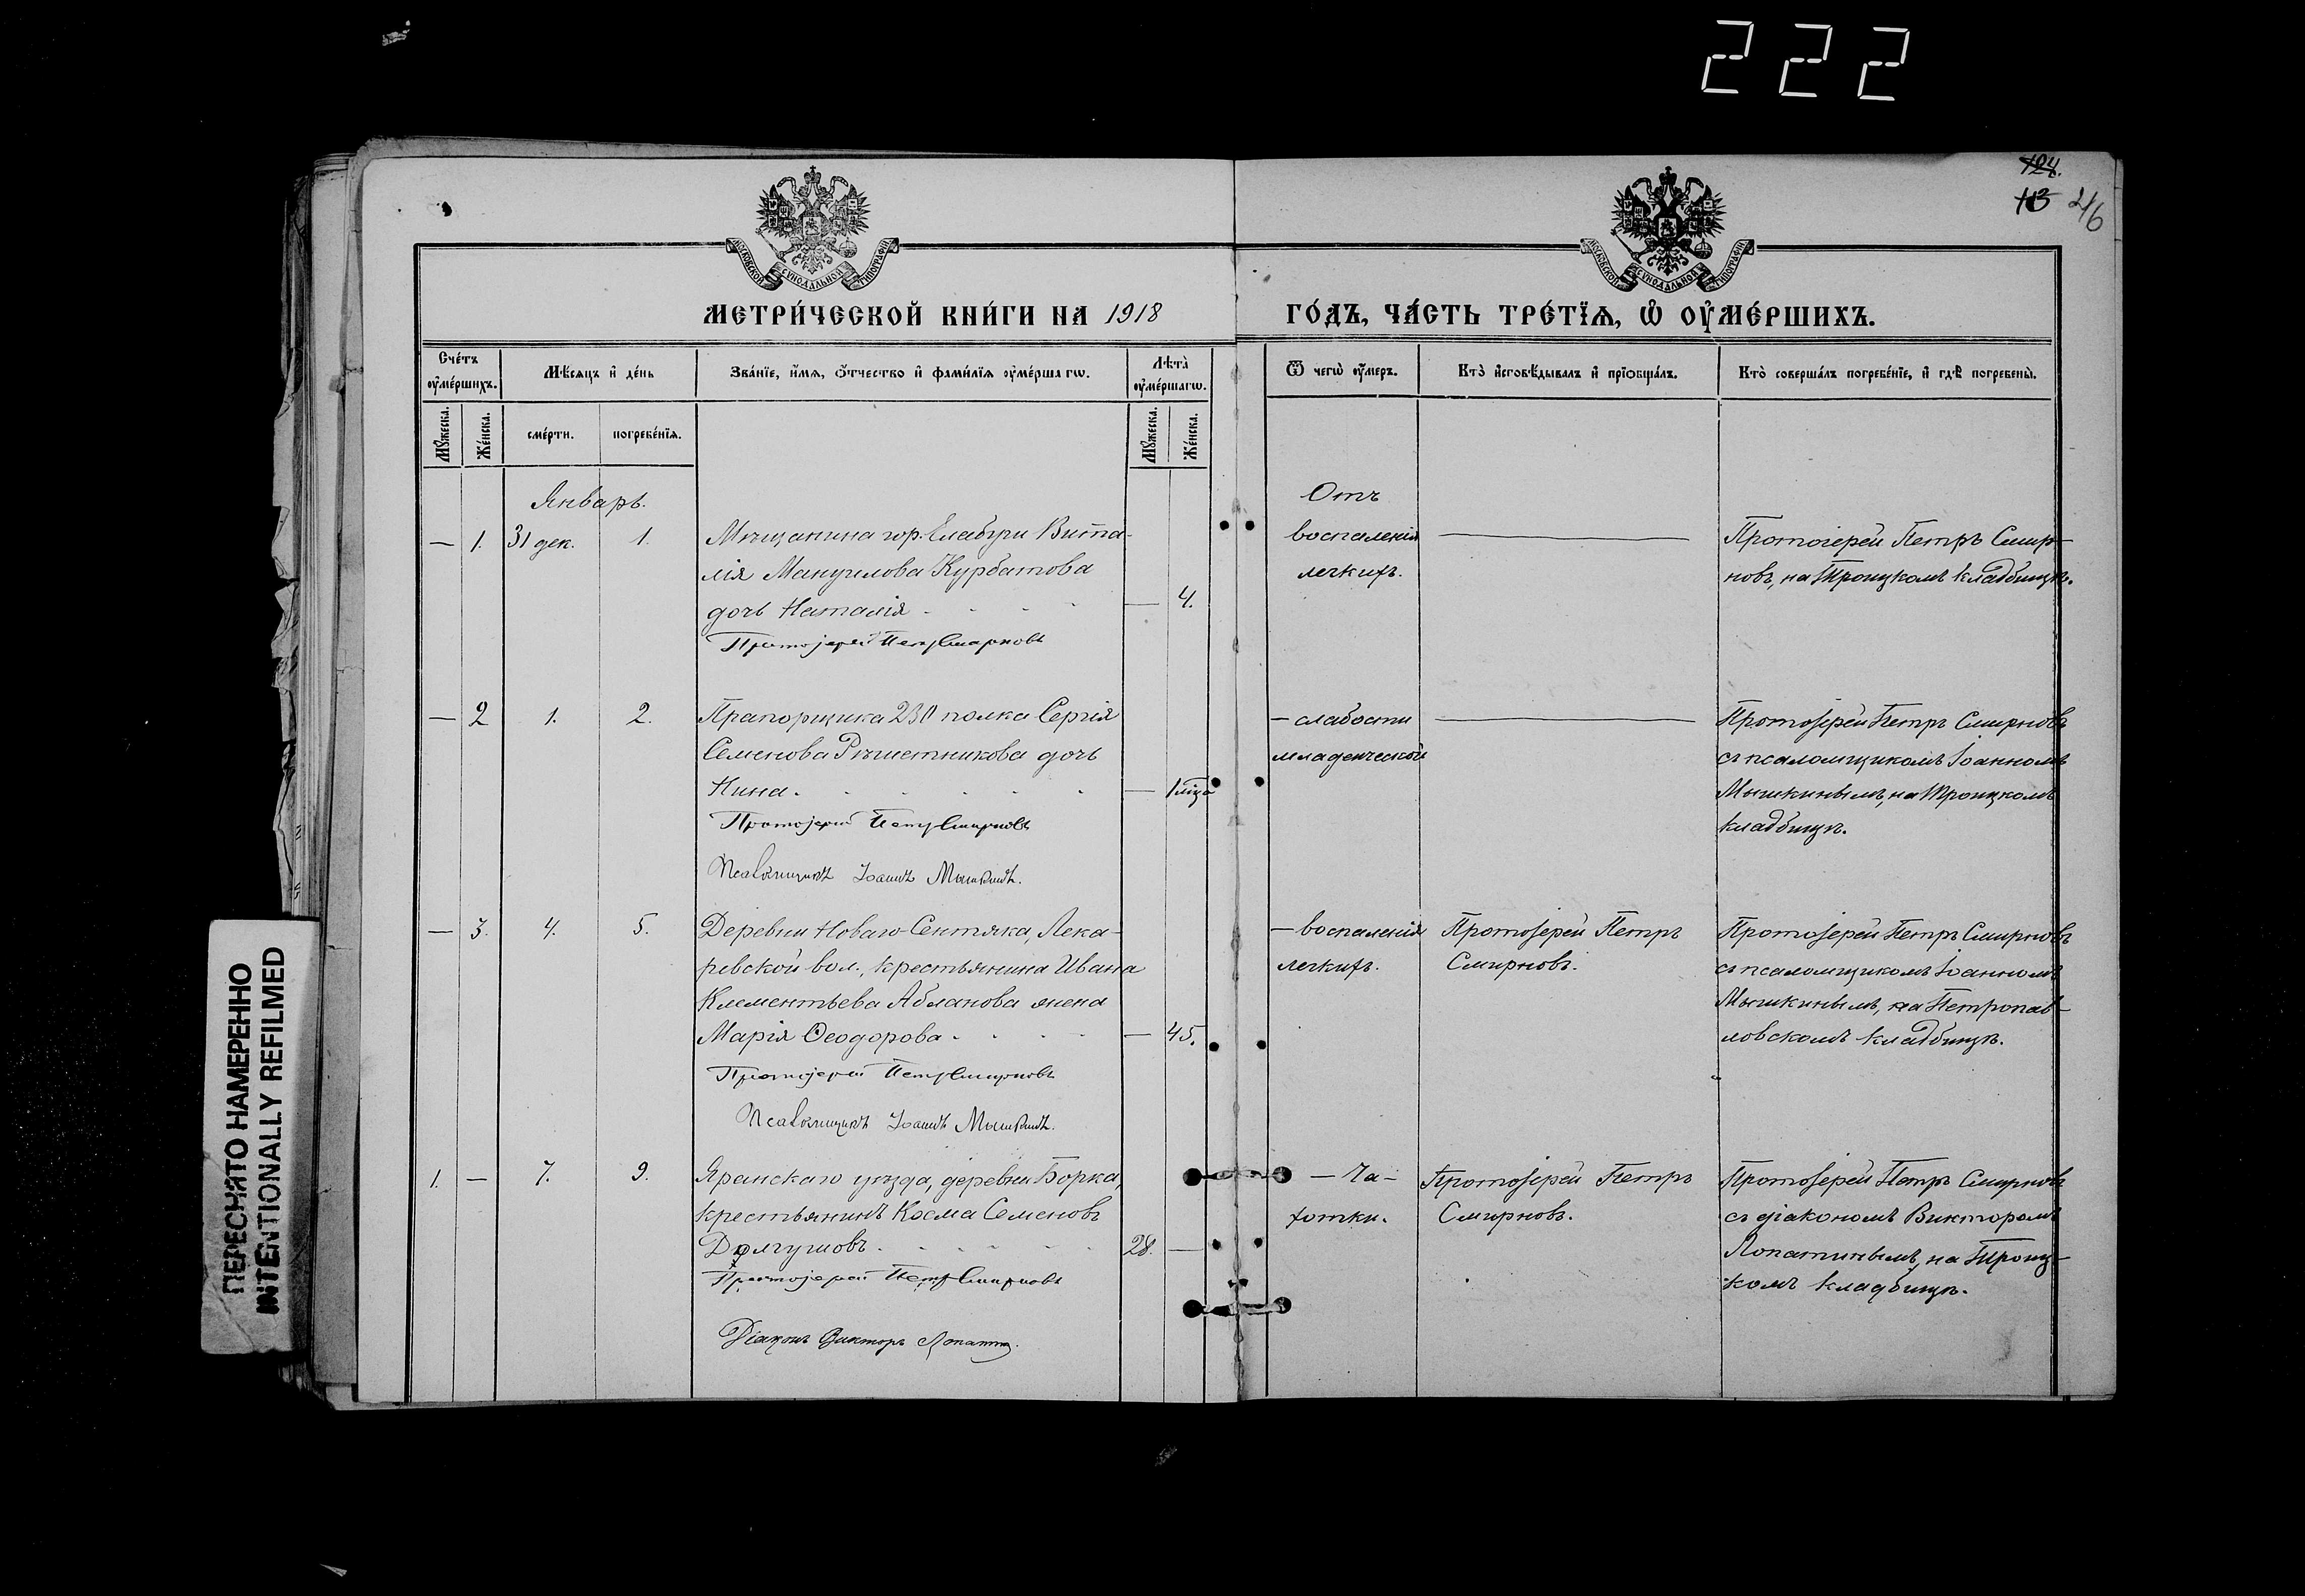 222
124.
113
216
МОСКОВСКОЙ СѴНОДАЛЬНОЙ ТИПОГРАФІИ
МОСКОВСКОЙ СѴНОДАЛЬНОЙ ТИПОГРАФІИ
МЕТРИ́ЧЕСКОЙ КНИ́ГИ НА 1918
ГО́ДЪ, ЧА́СТЬ ТРЕ́ТЇѦ, Ѡ҆ ОУ҆МЕ́РШИХЪ.
Сче́тъ
оу҆ме́ршихъ.
Мѣ́сяцъ и҆ де́нь
Зва́нїе, и҆́мѧ, ѻ҆́тчество и҆ фами́лїѧ оу҆ме́ршагѡ.
Лѣ́та
оу҆ме́ршагѡ.
Ѿ чегѡ̀ оу҆́меръ.
Кто̀ и҆сповѣ́дывалъ и҆ прїѡбща́лъ.
Кто̀ соверша́лъ погребе́нїе, и҆ гдѣ̀ погребены̀.
Мꙋ́жеска.
Же́нска.
сме́рти.
погребе́нїѧ.
Мꙋ́жеска.
Же́нска.
Январь.
— 1. 31 дек. 1.
Мѣщанина гор. Елабуги Вита-
лія Мануилова Курбатова
дочь Наталія — 4.
Протоіерей Петръ Смирновъ
Отъ
воспаленія
легкихъ.
Протоіерей Петръ Смир-
новъ, на Троицкомъ кладбищѣ.
— 2 1. 2.
Прапорщика 230 полка Сергія
Семенова Рѣшетникова дочь
Нина. — 1 мѣц.
Протоіерей Петръ Смирновъ
Псаломщикъ Іоаннъ Мышкинъ.
— слабости
младенческой
Протоіерей Петръ Смирновъ
съ псаломщикомъ Іоанномъ
Мышкинымъ, на Троицкомъ
кладбищѣ.
— 3. 4. 5.
Деревни Новаго-Сентяка, Лека-
ревской вол., крестьянина Ивана
Клементьева Абланова жена
Марія Ѳеодорова — 45.
Протоіерей Петръ Смирновъ
Псаломщикъ Іоаннъ Мышкинъ.
— воспаленія
легкихъ.
Протоіерей Петръ
Смирновъ.
Протоіерей Петръ Смирновъ
съ псаломщикомъ Іоанномъ
Мышкинымъ, на Петропав-
ловскомъ кладбищѣ.
1. — 7. 9.
Яранскаго уѣзда, деревни Борка,
крестьянинъ Косма Семеновъ
Долгушовъ. 28. —
Протоіерей Петръ Смирновъ
Діаконъ Викторъ Лопатин.
— Ча-
хотки.
Протоіерей Петръ
Смирновъ.
Протоіерей Петръ Смирновъ
съ діакономъ Викторомъ
Лопатинымъ, на Троиц-
комъ кладбищѣ.
ПЕРЕСНЯТО НАМЕРЕННО
INTENTIONALLY REFILMED